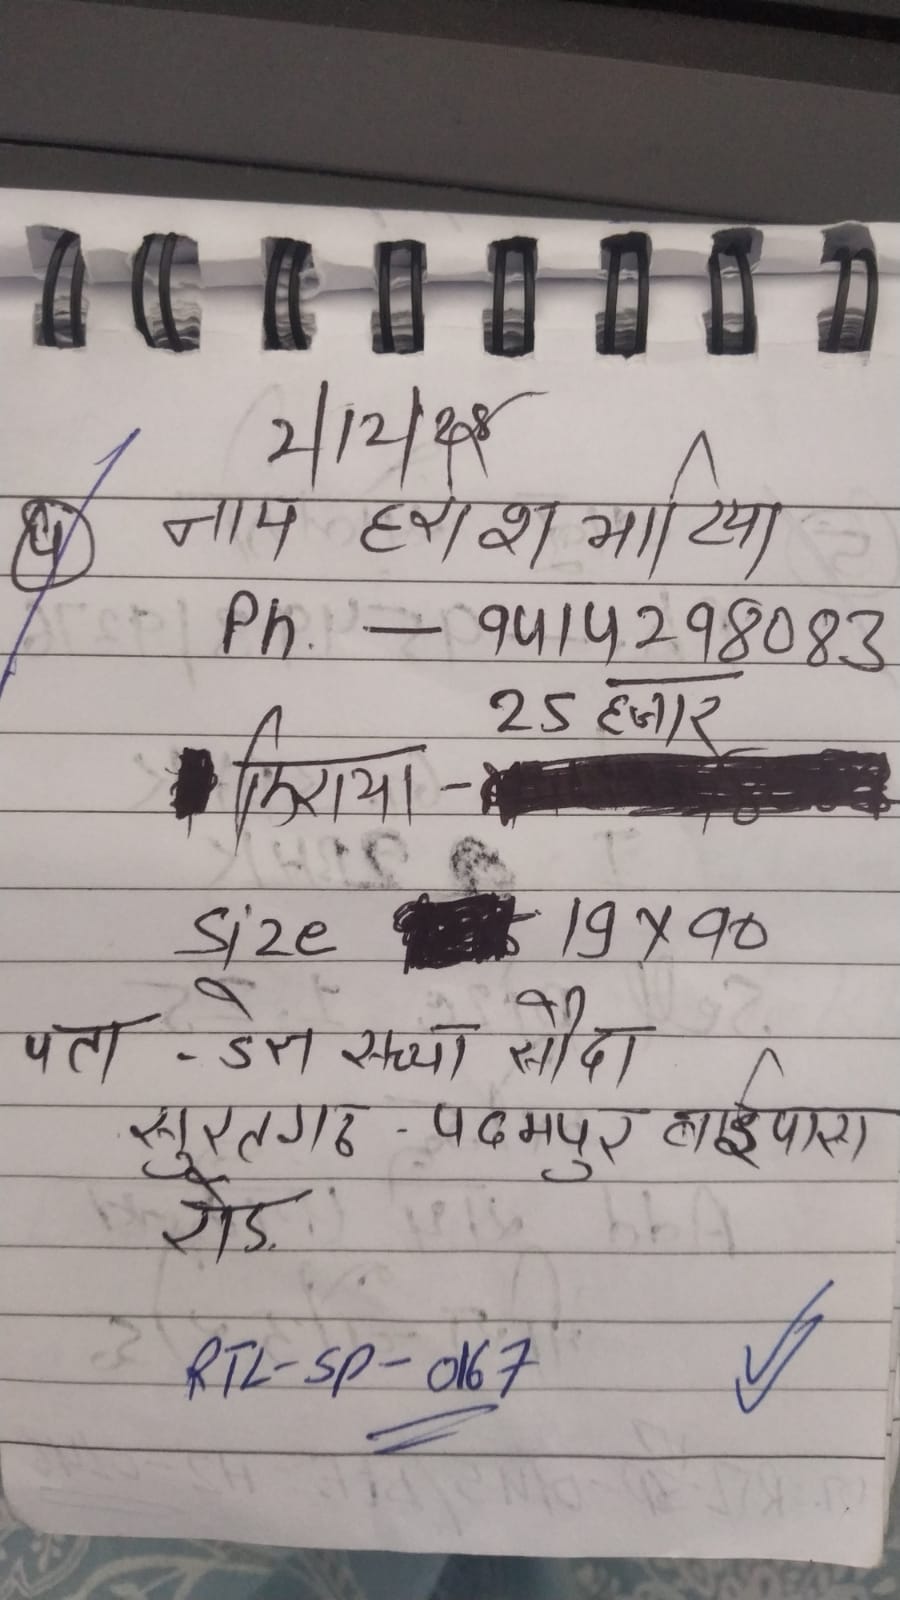 2/12/
नाम हरीश भाटिया
Ph. — 9414298083
25 हजार
किराया -
Size 19 x 90
पता - डेरा सच्चा सौदा
सुरतगढ - पदमपुर बाईपास
रोड.
RTL-SP-0167